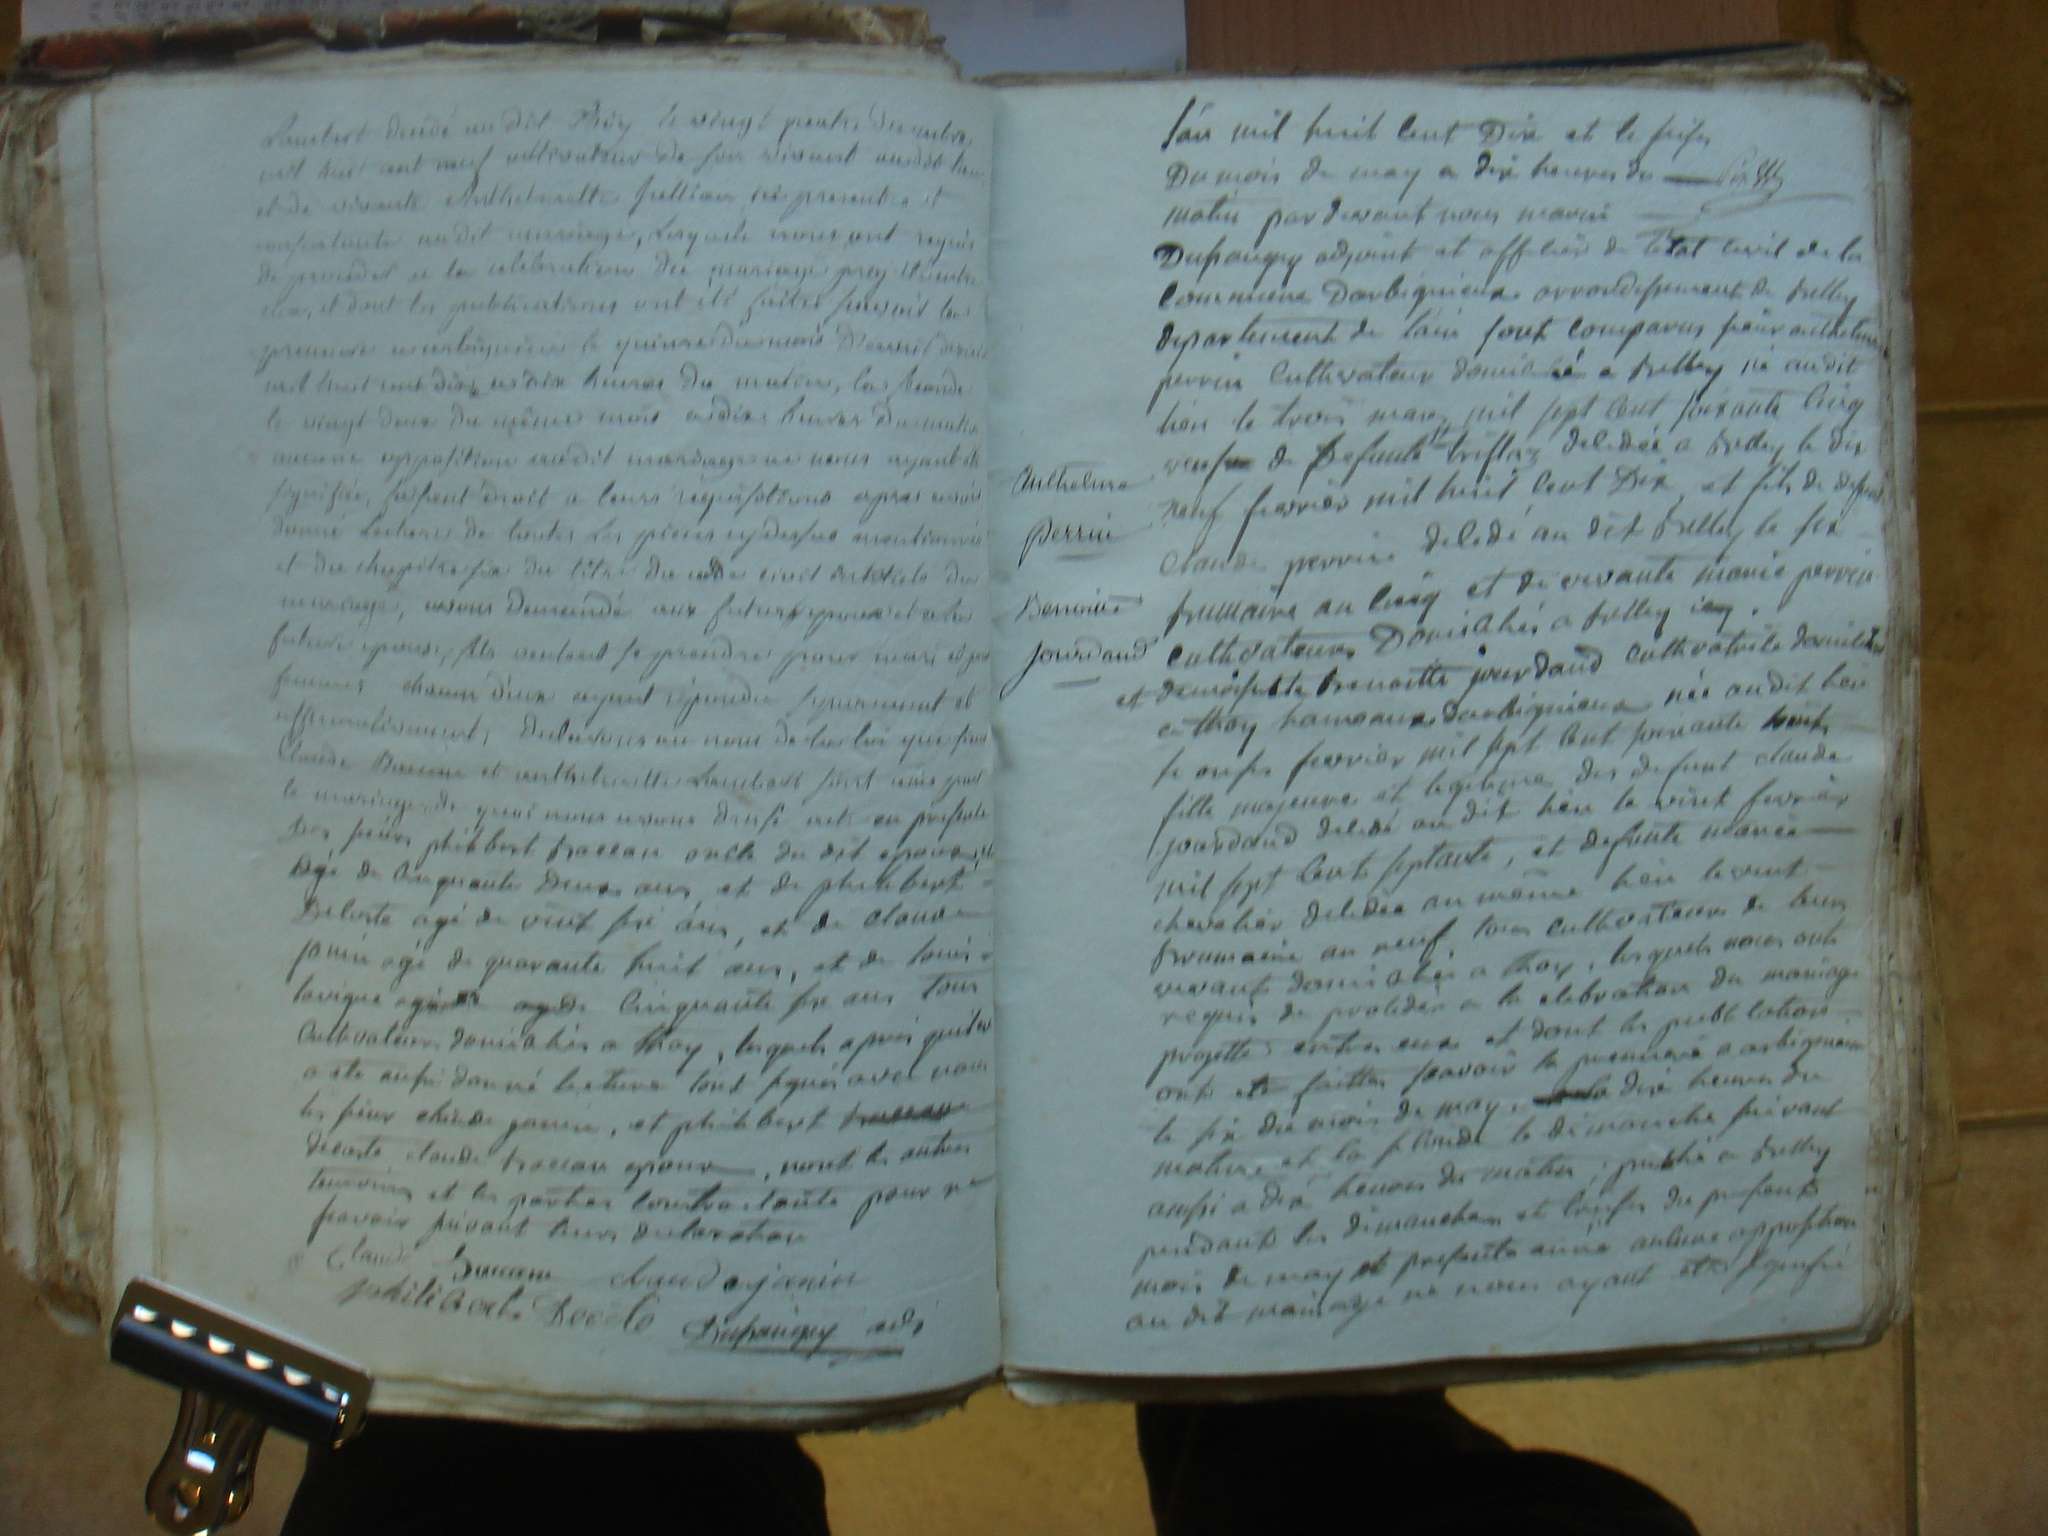 Lambert décédé au dit Thoy le vingt quatre décembre
mil huit cent neuf cultivateur de son vivant audit lieu
et de vivante Anthelmette Jullien ici presente et
consentante au dit mariage, Lesquels nous ont requis
de proceder a la celebration du mariage projetté entre
eux, et dont les publications ont été faites savoir la
premiere a arbignieu le quinze du mois d'avril
mil huit cent dix a dix heures du matin, la seconde
le vingt deux du même mois a dix heures du matin
aucune opposition audit mariage ne nous ayant été
signifiée, faisant droit a leurs requisitions apres avoir
donné Lecture de toutes les pièces cy dessus mentionnées
et du chapitre six du titre du code civil intitulé du
mariage, avons demandé aux futur epoux et a la
future epouse, s'ils veulent se prendre pour mari et pour
femme chacun d'eux ayant repondu separement et
affirmativement, Declarons au nom de la loi que
Claude Buccane et anthelmette Lambert sont unis par
le mariage de quoi nous avons dressé acte en presence
Des sieurs philibert Baccan oncle du dit epoux
agé de Cinquante Deux ans, et de philibert
Delaste agé de vint six ans, et de claude
janin agé de quarante huit ans, et de louis
lavigne agé Cinquante six ans tous
Cultivateurs domiciliés a Thoy, lesquels apres qu'il en
a ete aussi donné lecture l'ont signés avec nous
les sieur claude janin, et philibert
decoste claude baccan epoux, nont les autres
temoins et les parties Contractante pour ne
savoir suivant leurs declaration
Claude Buccane claude janin
philiberte Decoste
Dupaugey adj
l'an mil huit Cent Dix et le seise
Du mois de may a dix heures du
matin pardevant nous marin
Dupaugey adjoint et officier de l'état civil de la
Commune Darbignieux arrondissement de Belley
departement de l'ain sont Comparus sieur anthelme
perrin Cultivateur domicilié a Belley né au dit
lieu le trois mars mil sept Cent soixante Cinq
veuf de Defunte decedée a Belley le dix
neuf fevrier mil huit Cent Dix, et fils de defunt
Claude perrin decedé au dit Belley le six
frimaire an Cinq et de vivante marie perrin
cultivateurs Domiciliés a Belley
et demoiselle Benoitte jourdand cultivatrice domiciliée
a thoy hameaux darbignieux née au dit lieu
le onse fevrier mil sept Cent soixante huit
fille majeure et legitime des defunt claude
jourdand decedé au dit lieu le vint fevrier
mil sept Cent septante, et defunte marie
chevalier decedée au même lieu le vint
Brumaire an neuf, tous cultivateurs de leurs
vivant domiciliés a thoy, lesquels nous ont
requis de proceder a la celebration du mariage
projetté entre eux et dont les publications
ont eté faittes savoir la premiere a arbignieux
le six du mois de may a dix heures du
matin et la seconde le dimanche suivant
aussi a dix heures du matin, publié a Belley
pendants les dimanches et l'onse du presents
mois de may et presente année aucune opposition
au dit mariage ne nous ayant eté signifié
Anthelme
Perrin
Bennoitte
Jourdand